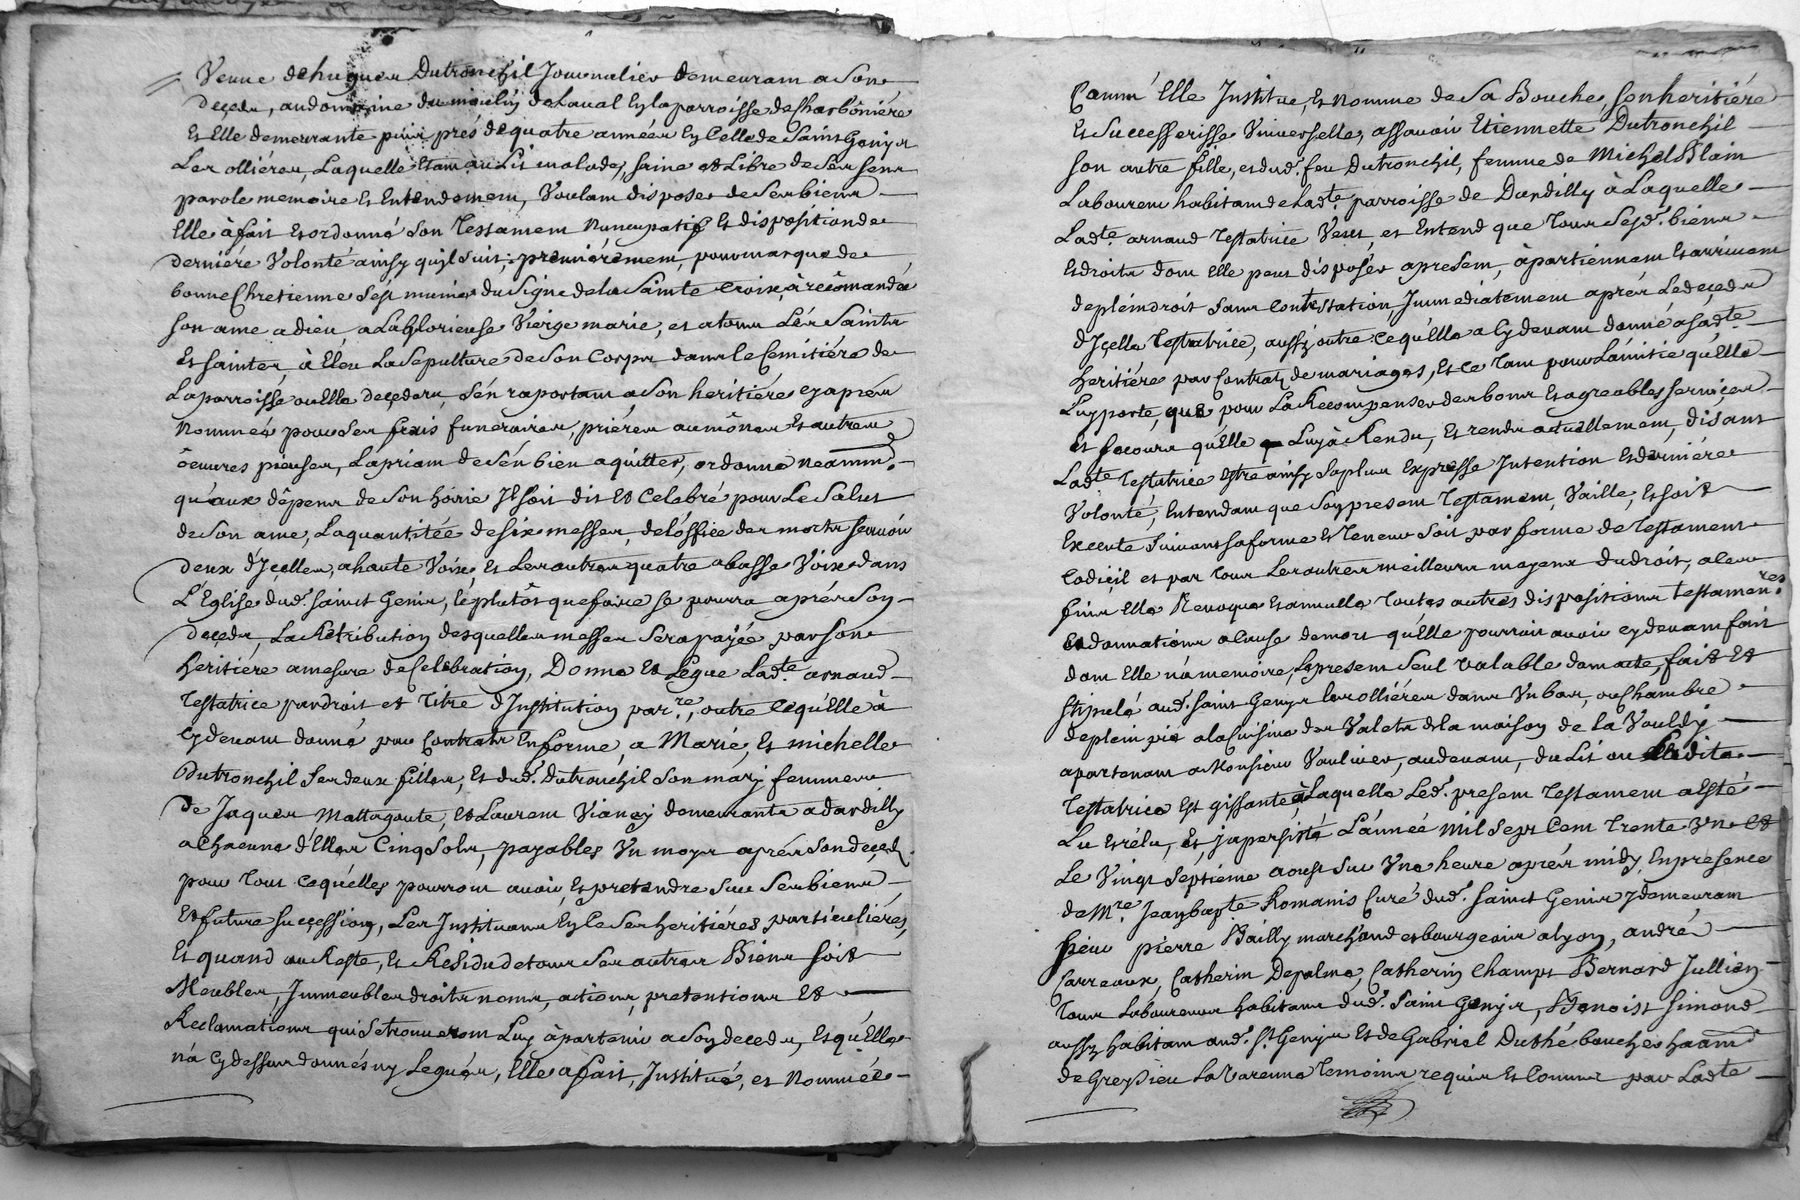 Veuve de hugues Dutronchil Journalier demeurant a son
deçeds, au domaine du moulin de Laval En la parroisse de Charbonniere
Et Elle demeurante puis prés de quatre années En Celle de Saint Genis
Les ollières, Laquelle Etant au Lit malade, saine et Libre de Ses sens
parole memoire Et Entendement, Voulant disposer de Ses biens
Elle à fait Et ordonné son Testament Nuncupatif Et disposition de
derniére Volonté ainsy quil suit, premiérement, pour marque de
bonne Chretienne s'est munie du signe de la Sainte Croix, à recomandée
son ame a dieu a La glorieuse Vierge marie, et a tous Lés Saints
Et saintes, à Eleu La Sepulture de Son Corps dans le Cemitiére de
La parroisse ou Elle deçedera, s'én raportant a Son heritiére cy aprés
Nommeé pour Ses frais funeraires, priéres aumônes Et autres
ôeuvres pieuses, La priant de s'én bien aquitter, ordonne néamm.
qu'aux dêpens de son hoirie Il soit dit Et Celebré pour Le Salut
de Son ame, La quantitée de six messes, de l'óffice des morts sçavoir
deux d'Içelles, a haute Voix, Et Les autres quatre a basse Voix dans
L'Eglise dud. saint Genis, le plutôt que faire se pourra aprés Son
deçeds, La Retribution desquelles messes sera payée par son
heritiere a mesure de Celebration, Donne Et Legue Lad.te arnaud
Testatrice par droit et Titre d'Institution par.re, outre ce qu'Elle à
Cy devant donné par Contrats En forme, a Marie, Et michelle
Dutronchil Ses deux filles, Et dud. Dutronchil Son mary femmes
de Jaques Mattagaute, Et Laurent Vianey demeurante a dardilly
a Chacune d'Elles Cinq Sols, payables Un moys aprés son deçeds
pour Tout ce qu'elles pourront avoir, Et pretendre Sur Ses biens
Et future succession, Les Instituant En ce Ses heritiéres particuliéres,
Et quand au Reste, Et Residu de tous Ses autres Biens soit
Meubles, Immeubles droits noms, actions, pretentions Et
Reclamations qui se trouveront Luy apartenir a Son deceds, Et qu'Elle
n'a Cy dessus donnés ny Legués, Elle a fait, Institué, et Nommée
Comm' Elle Institue, Et nomme de Sa Bouche, son heritiére
Et Successerisse Universelle, assavoir Etiennette Dutronchil
Son autre fille, et dud. feu Dutronchil, femme de Michel Blain
Laboureur habitant de Lad.te parroisse de Dardilly à Laquelle
Lad.te arnaud Testatrice Veut, et Entend que Tous Sesd. biens
Et droits dont Elle peut disposér a present, apartiennent Et arrivent
de plein droit sans Contestation, Immediatement aprés Le deçeds
d'Içelle Testatrice, aussy outre ce qu'Elle a Cy devant donné a sad.te
heritiére par Contrat de mariage, Et ce Tant pour L'amitié qu'Elle
Luy porte, que pour La Recompenser des bons Et agreables services
Et secours qu'Elle Luy à Rendu, Et rends actuellement, disant
Lad.te Testatrice Estre ainsy Sa plus Expresse Intention Et derniére
Volonté, Entendant que Son present Testament, Vaille, Et soit
Executé suivant sa forme Et Teneur Soit par forme de Testament
Codiçil et par Tous Les autres meilleurs moyens du droit, a ces
fins Elle Revoque Et annulle Toutes autres dispositions Testamen.res
Et donnations a Cause de mort qu'Elle pourroit avoir cy devant fait
dont Elle n'a memoire, Le present Seul Valable dont acte, fait Et
stipulé aud. saint Genys les ollières dans Un bas, ou Chambre
de plein pié a la Cuisine des Valets de la maison de La Vouldy
apartenant a Monsieur Vaulivier, au devant, du Lit ou Ladite
Testatrice Est gissante, à Laquelle Led. present Testament a Eté
Lu Et rélu, Et y a persisté L'année Mil Sept Cent Trente Un et
Le Vingt Septiéme aoust Sur Une heure aprés midy, En presence
de M.re Jean bapte Romanis Curé dud. saint Genis y demeurant
sieur pierre Bailly marchand et bourgeois a lyon, andré
Carreaux, Catherin Depalme, Catherin Champt Bernard Jullien
Tous Laboureurs habitans dud. Saint Genys, Benoist Simond
aussy habitant aud. St. Genys Et de Gabriel Duthé boucher
de Grezieu La Varenne Temoins requis Et Connus par Lad.te